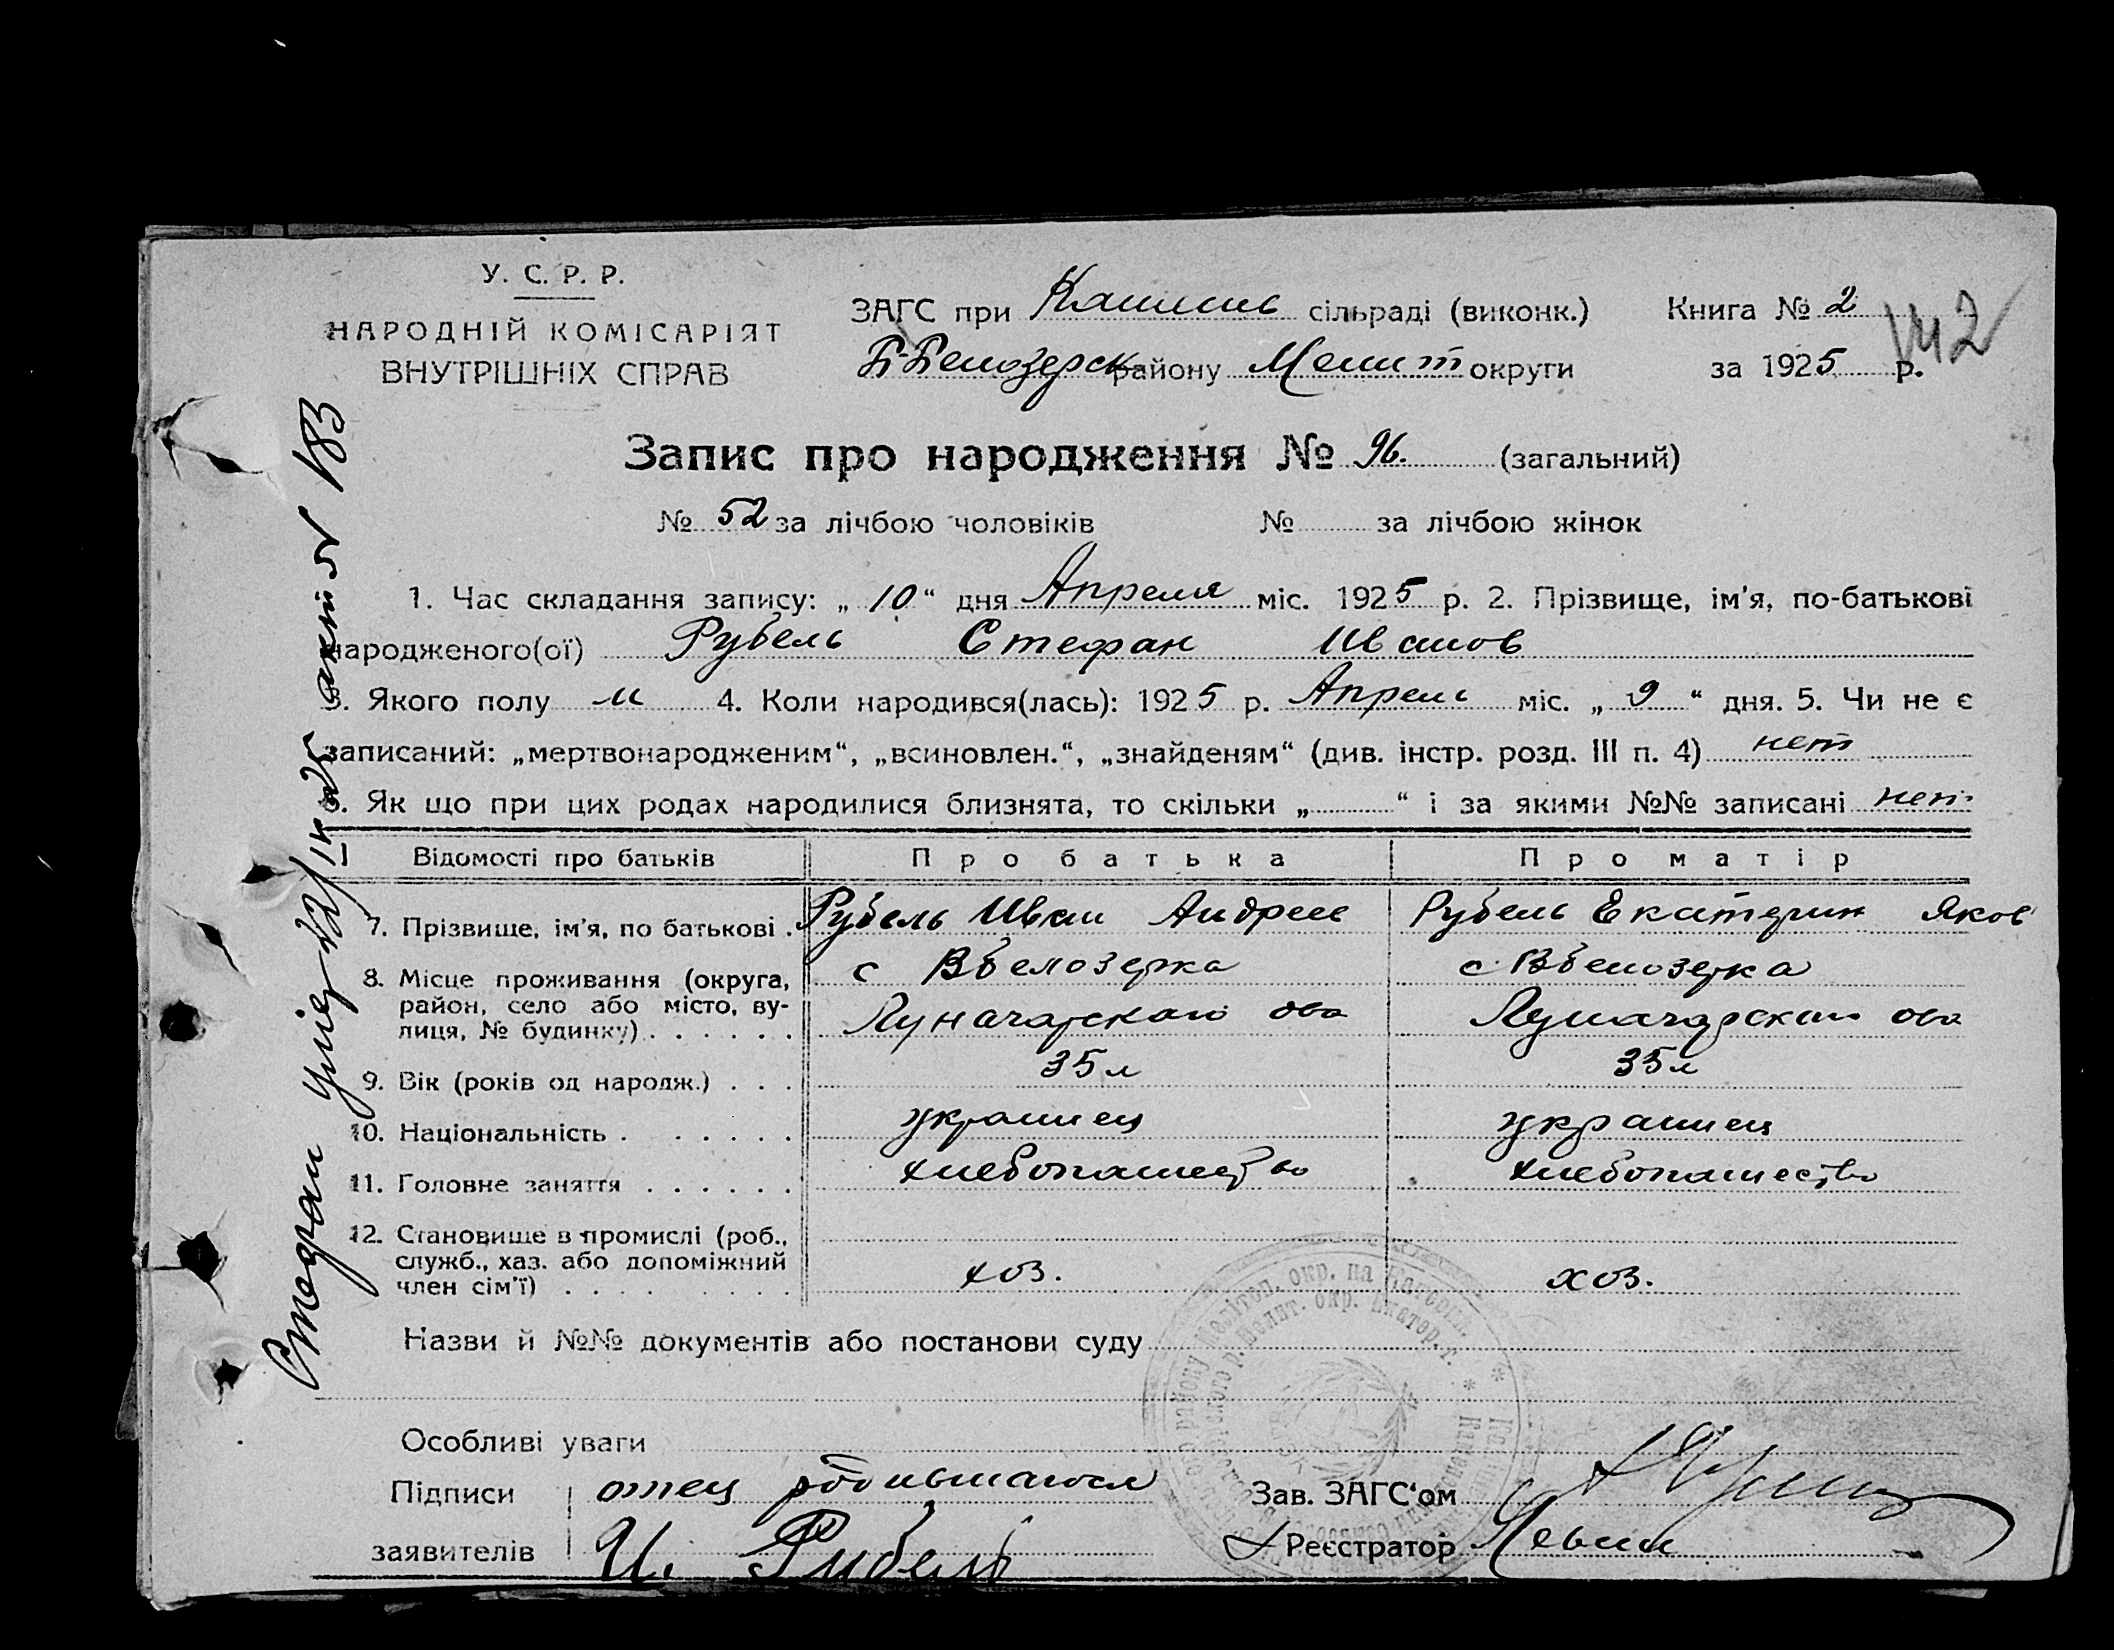 У. С. Р. Р.
НАРОДНІЙ КОМІСАРІЯТ
ВНУТРІШНІХ СПРАВ
ЗАГС при сільраді (виконк.)
Б-Белозерск району Мелит округи
Книга № 2
за 1925 р.
142
Запис про народження № 96. (загальний)
№ 52 за лічбою чоловіків № за лічбою жінок
1. Час складання запису: „ 10 “ дня Апреля міс. 1925 р. 2. Прізвище, ім'я, по-батькові
народженого(ої) Рубель Стефан Иванов
3. Якого полу м 4. Коли народився(лась): 1925 р. Апрель міс. „ 9 “ дня. 5. Чи не є
записаний: „мертвонародженим“, „всиновлен.“, „знайденям“ (див. інстр. розд. III п. 4) нет
6. Як що при цих родах народилися близнята, то скільки „ “ і за якими №№ записані нет
Відомості про батьків Про батька Про матір
7. Прізвище, ім'я, по батькові . Рубель Иван Андрее Рубель Екатерин Яков
8. Місце проживання (округа,
район, село або місто, ву-
лиця, № будинку) . . . . . .
с Вбелозерка
Луначарского ова
с. Вбелозерка
Луначарского ова
9. Вік (років од народж.) . . . 35 л 35 л
10. Національність . . . . . . украинец украинец
11. Головне заняття . . . . . . хлебопашество хлебопашество
12. Становище в промислі (роб.,
служб., хаз. або допоміжний
член сім'ї) . . . . . . . . .
хоз. хоз.
Назви й №№ документів або постанови суду
Особливі уваги
Підписи
заявителів
отец родившагося
И. Рубель
Зав. ЗАГС‘ом
Реєстратор Левин
Стефан умер 22/ 25 актом № 183